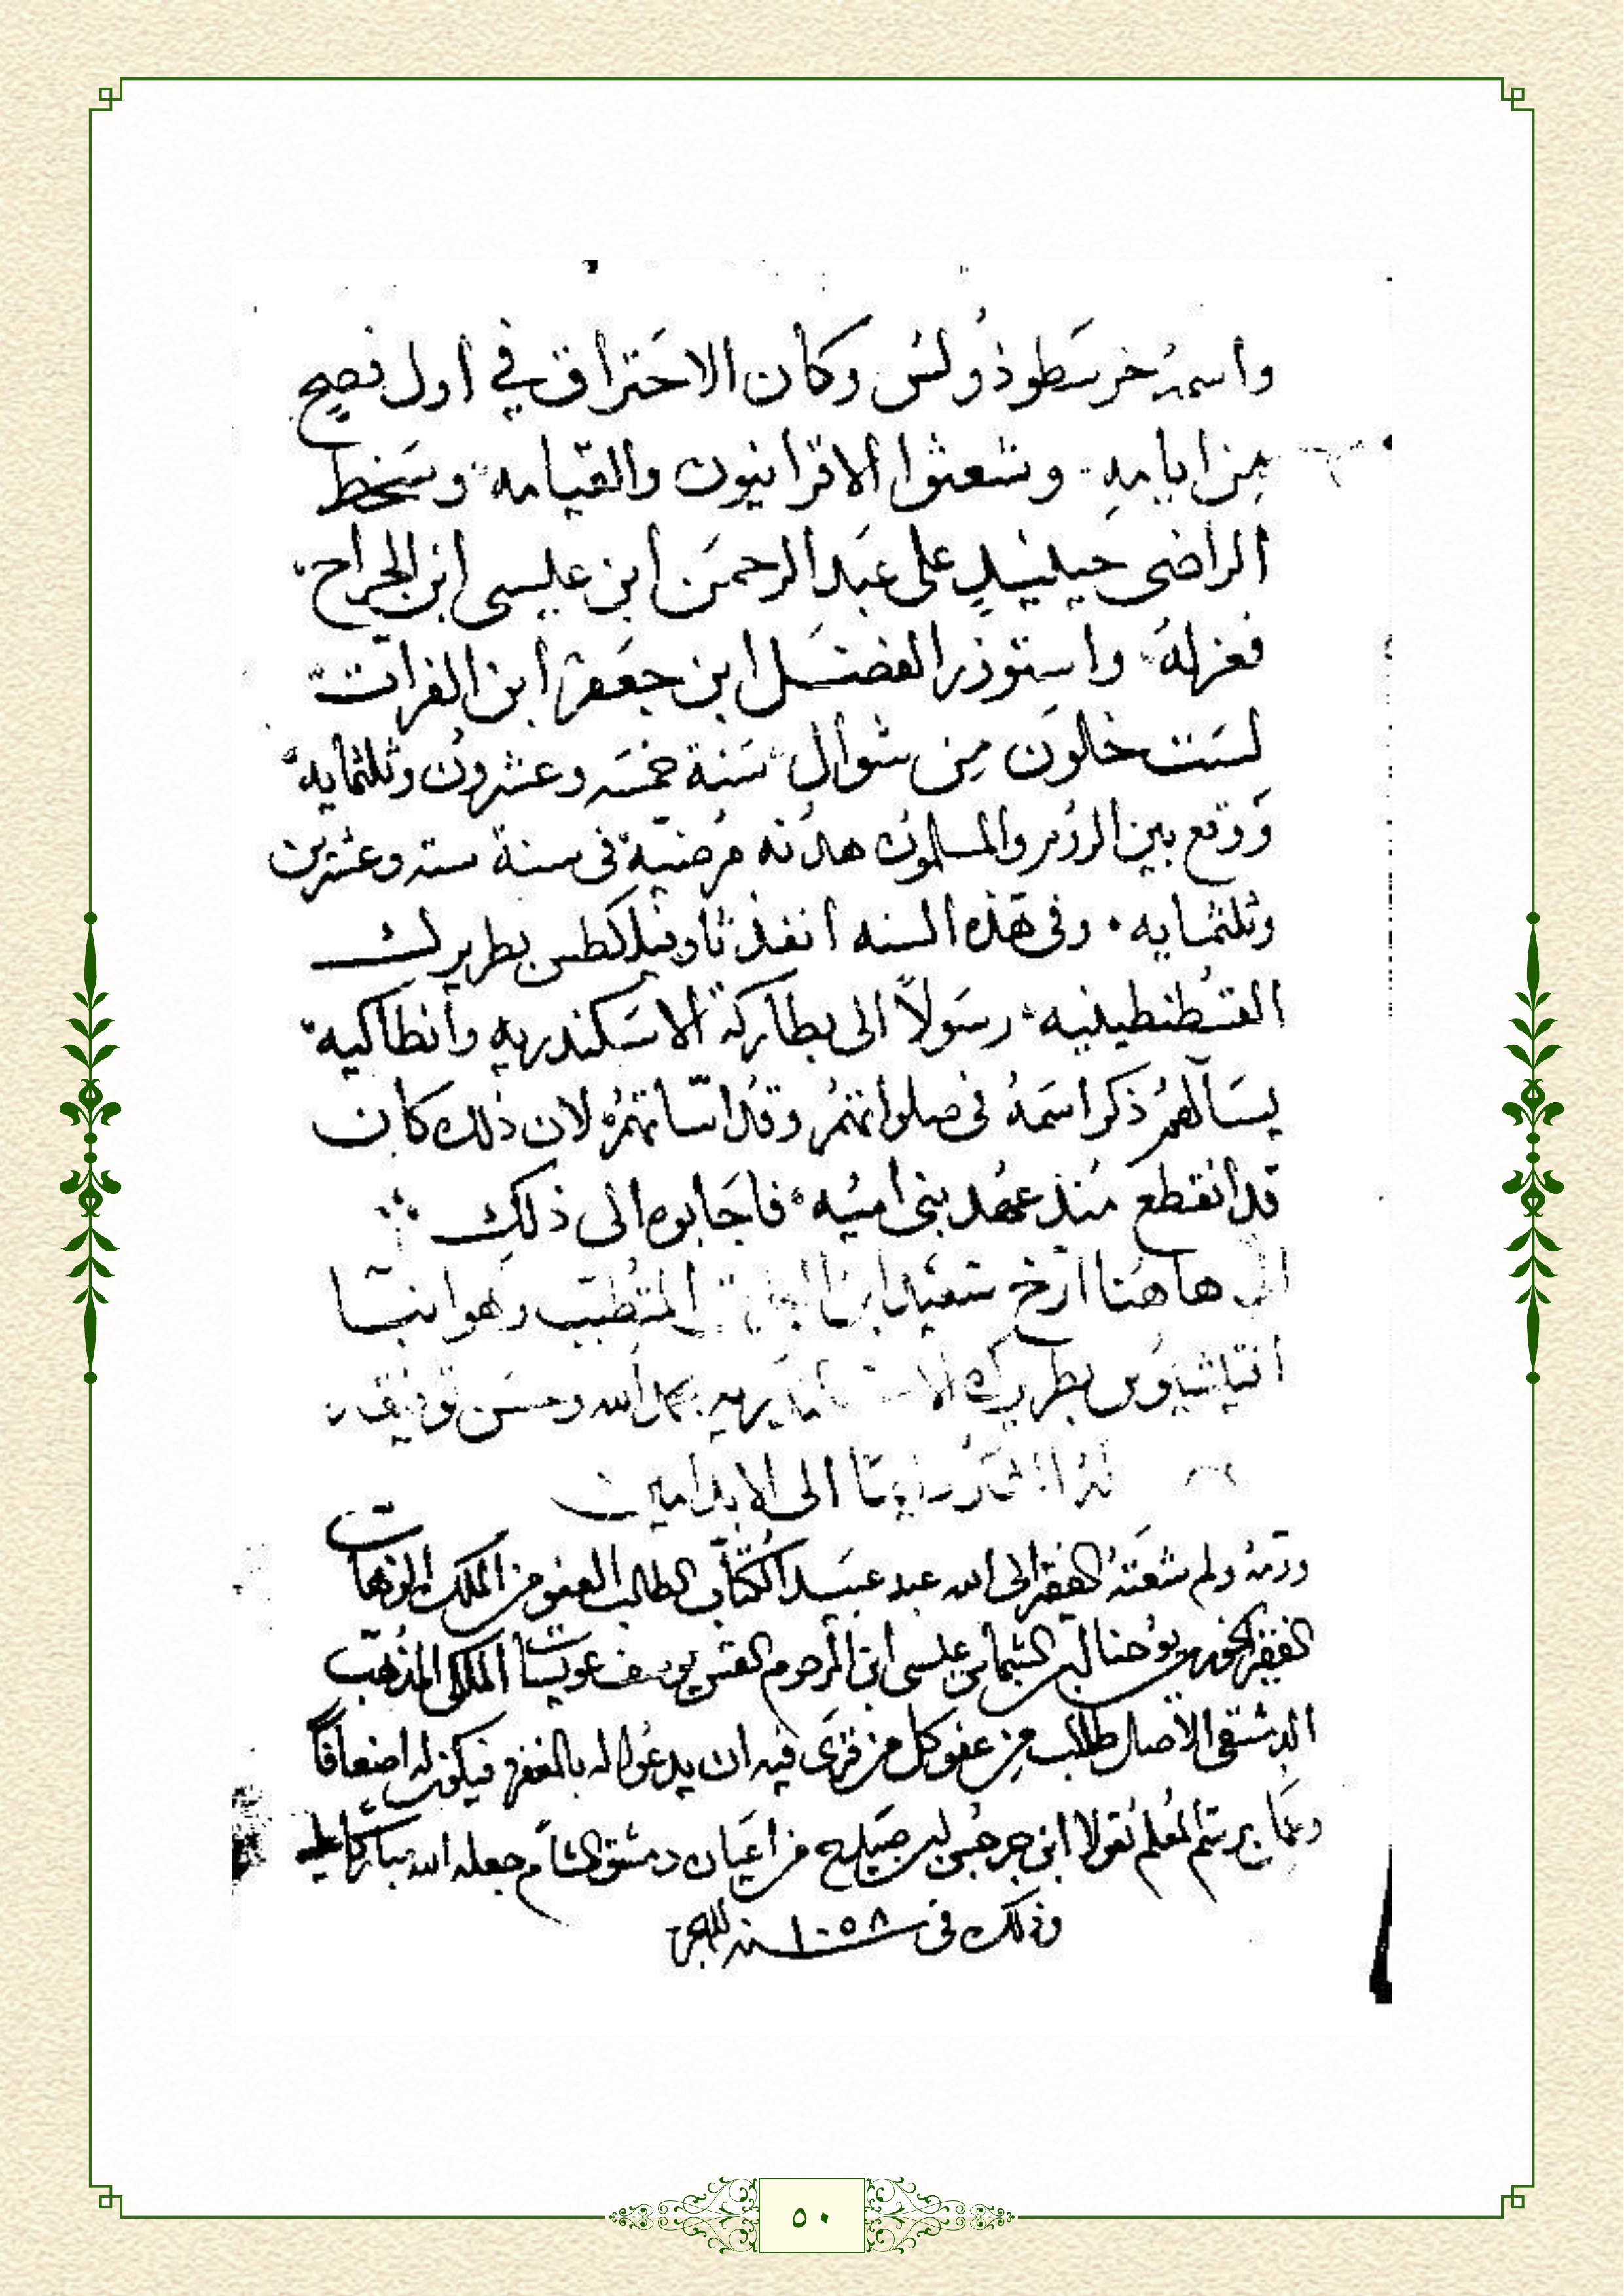 واسمه خرسطوذولس وكان الاحتراق في اول فصح
من ايامه وشعثوا الاقرانيون والقيامه وسخط
الراضى حينيذٍ على عبد الرحمن ابن عيسى ابن الجراح
فعزله واستوذر الفضل ابن جعفر ابن الفرات
لست خلون من شوال سنة خمسه وعشرون وثلثمايه
ووقع بين الروم والمسلمون هدنه مرضيه فى سنة سته وعشرين
وثلثمايه وفى هذه السنه انفذ ثاوفيلكطس بطريرك
القسطنطينيه رسولاً الى بطاركة الاسكندريه وانطاكيه
يسالهم ذكر اسمه فى صلواتهم وقداساتهم لان ذلك كان
قد انقطع منذ عهد بنى اميه فاجابوه الى ذلك
الى هاهنا ارخ سعيد ابن المتطبب وهوا
بطريرك الله وحسن توفيقه
الى الابد امين
ولم شعته الفقير الى الله عبد عبيد الطالب العفو من الملك
الفقير يوحنا الشماس عيسى ابن المرحوم القس يوسف عويسات الملكى المذهب
الدمشقى الاصل طالب من عفو كل من قرى فيه ان يدعوا له بالمغفره فيكون له اضعافاً
المعلم نقولا ابن جرجس من اعيان دمشق الشام جعله الله مباركا عليه
وذلك فى سنه ١٠٥٨ للهجره
٥٠